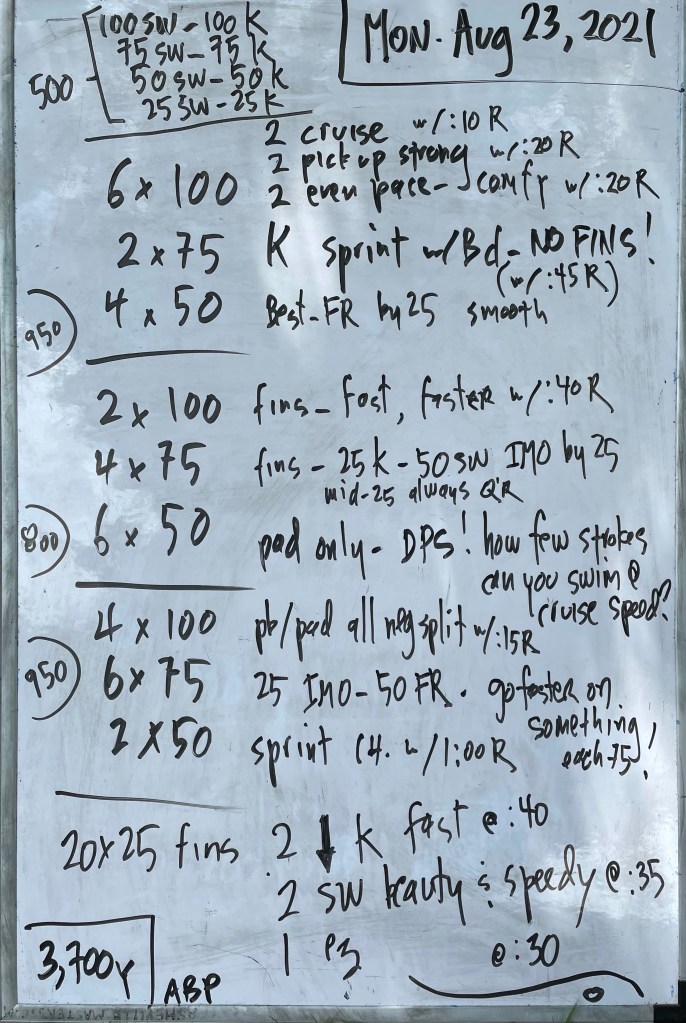 MON. Aug 23, 2021
500
100 SW - 100 K
75 SW - 75 K
50 SW - 50 K
25 SW - 25 K
6 x 100
2 cruise w/:10 R
2 pick up strong w/:20 R
2 even pace - comfy w/:20 R
2 x 75 K sprint w/Bd - NO FINS!
(w/:45R)
950
4 x 50 Best-FR by 25 smooth
2 x 100 fins - fast, faster w/:40 R
4 x 75 fins - 25 k - 50 sw IMO by 25
mid-25 always Q'R
800
6 x 50 pad only - DPS! how few strokes
can you swim @
cruise speed?
4 x 100 pb/pad all neg split w/:15R
950
6 x 75 25 IMO - 50 FR. go faster on
something
each 75!
2 x 50 sprint CH. w/1:00 R
20x25 fins 2 ↓ K fast @:40
2 SW beauty & speedy @:35
1 ez @:30
3,700y
ABP
ASHEVILLE MASTERS